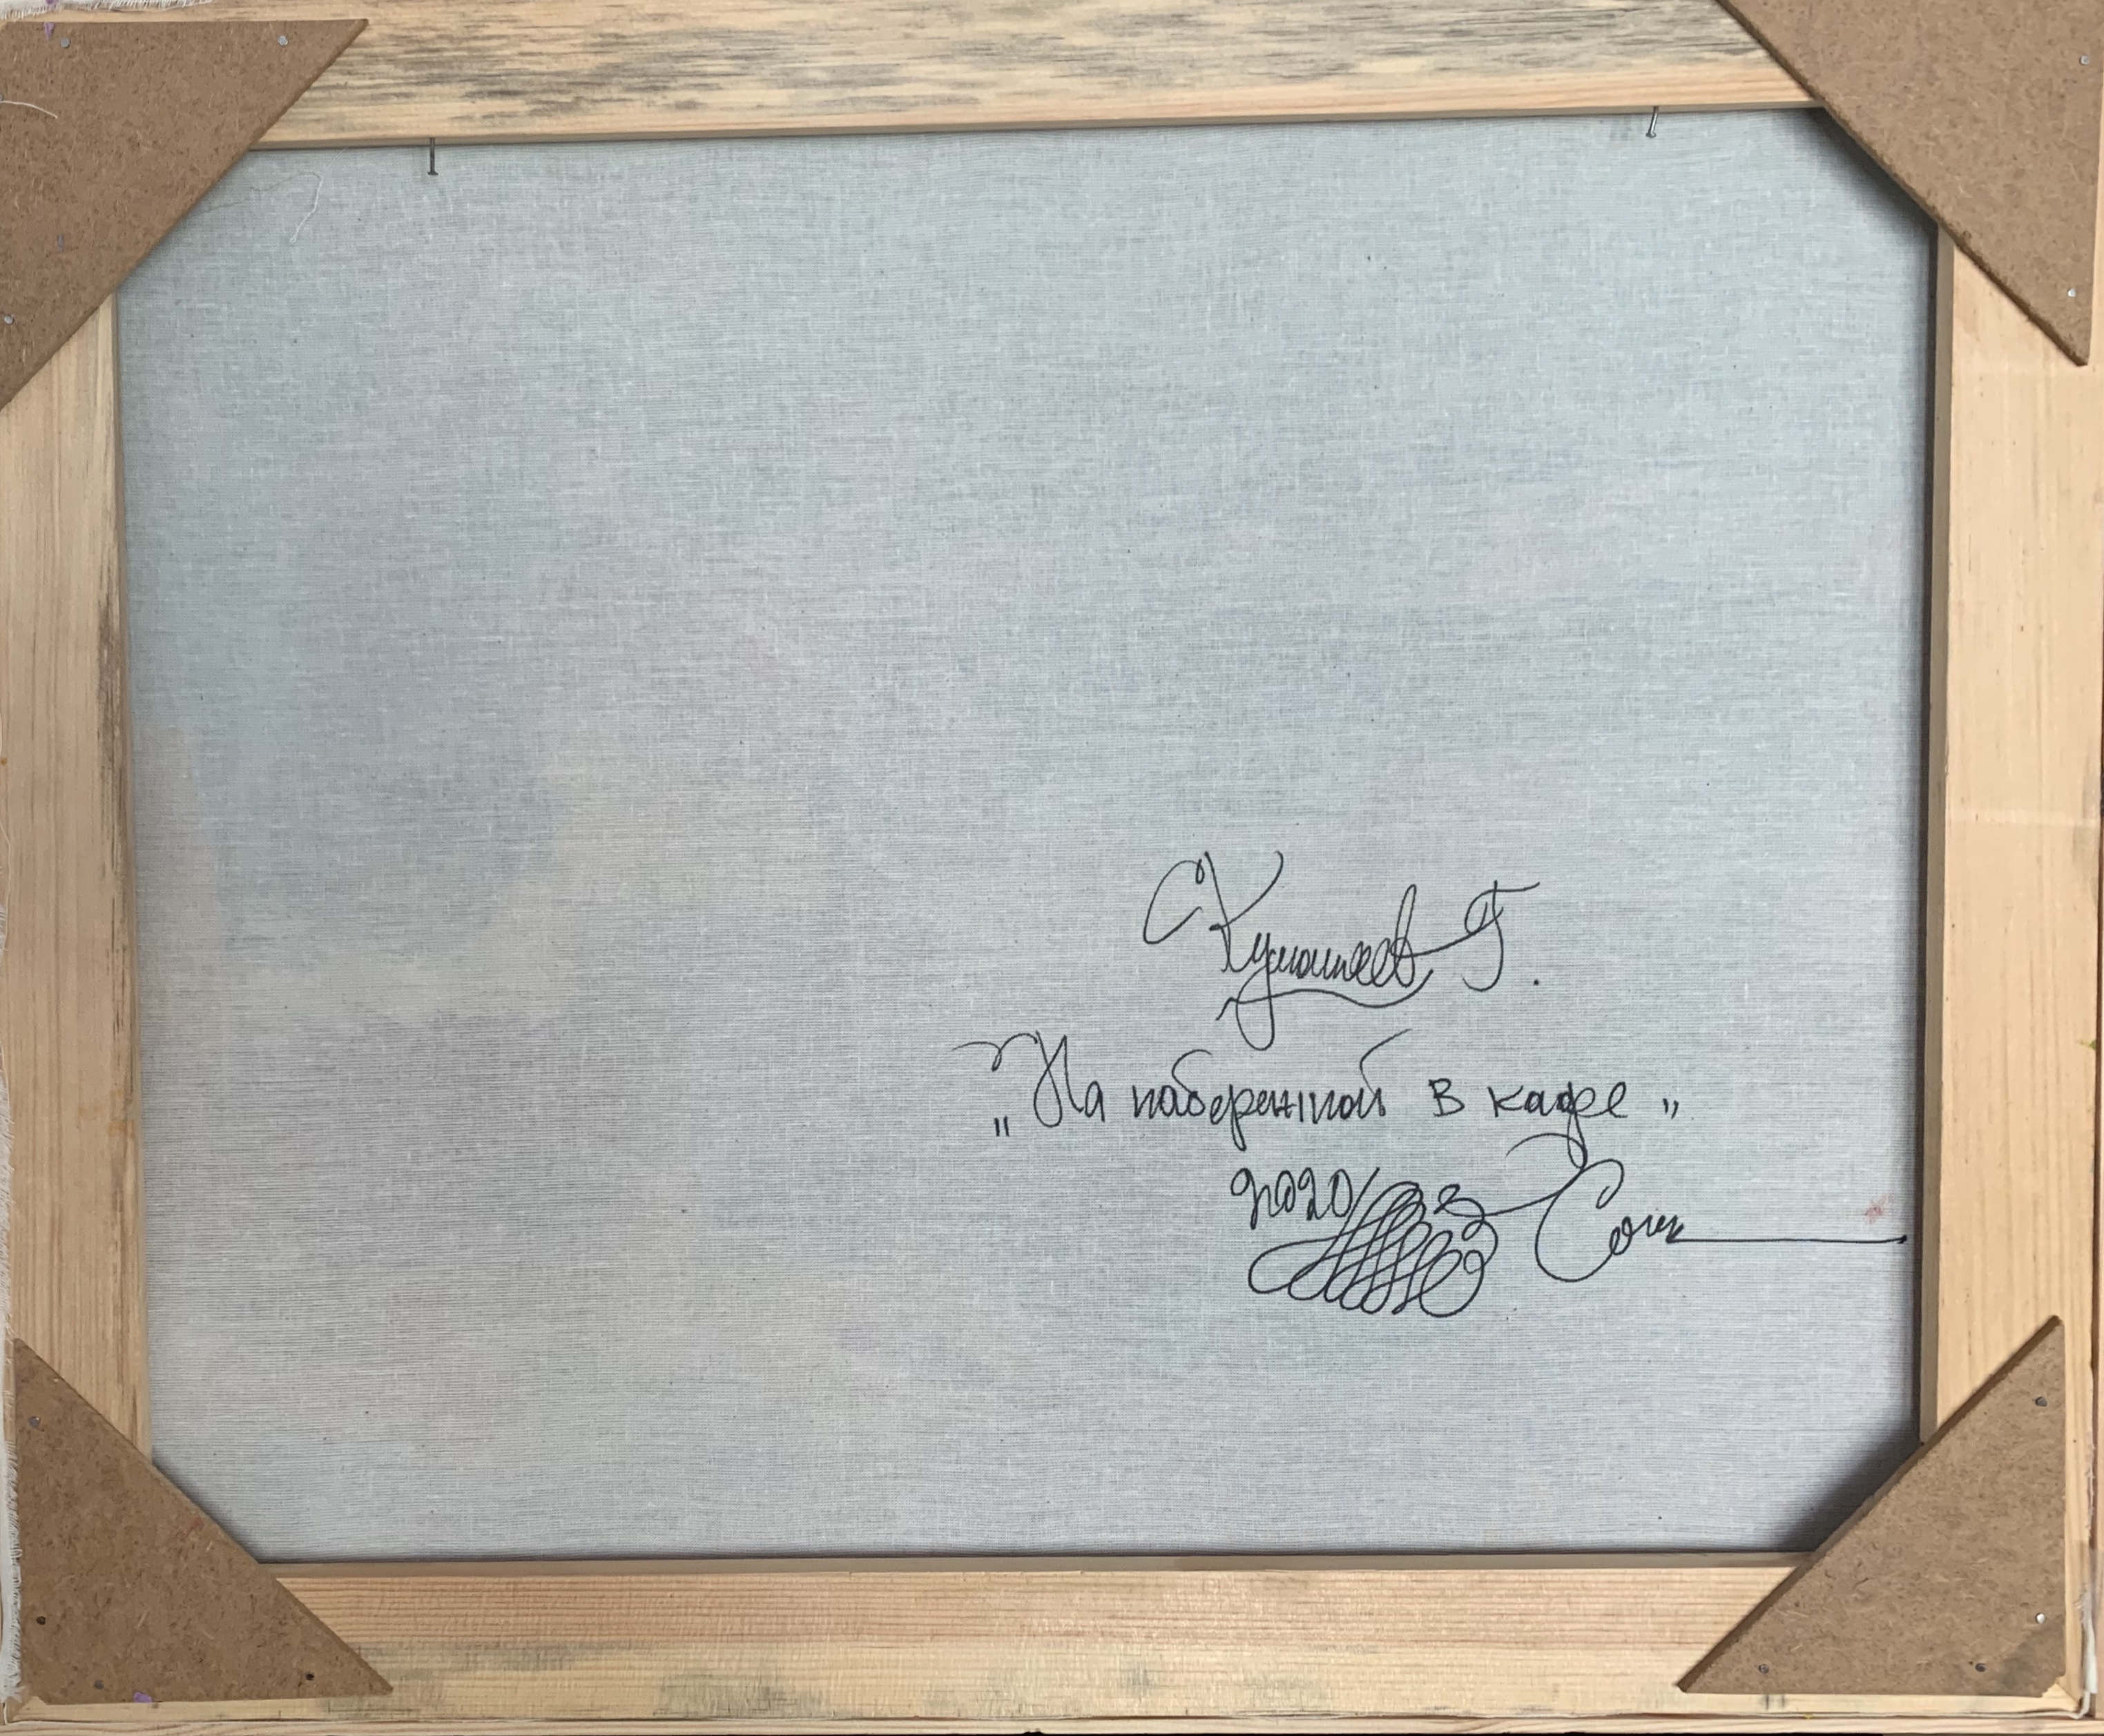 Кумашев Г.
„На набережной в кафе„
2020 г Сочи